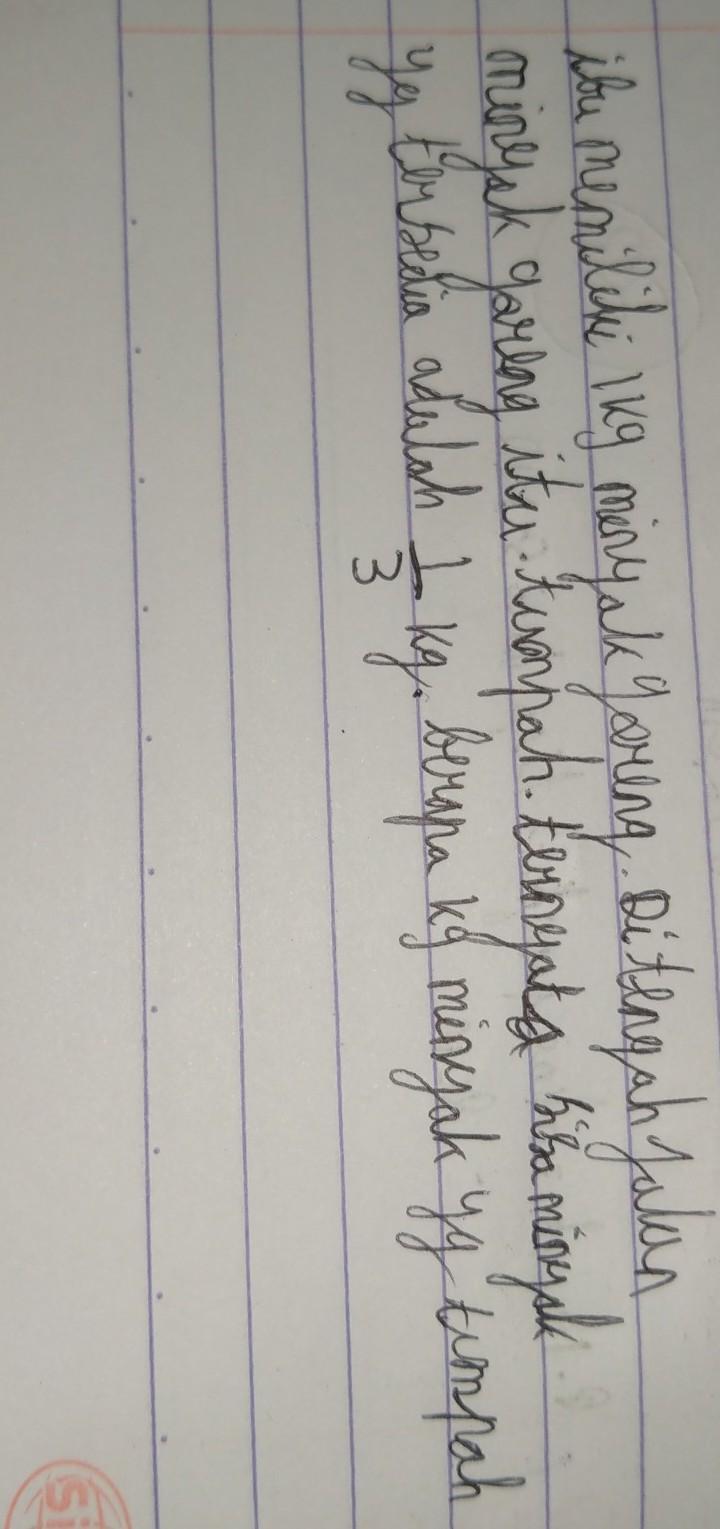 ibu memiliki 1 kg minyak goreng. Di tengah jalan
minyak goreng itu. tumpah. ternyata sisa minyak
yg tersedia adalah 1/3 kg. berapa kg minyak yg tumpah